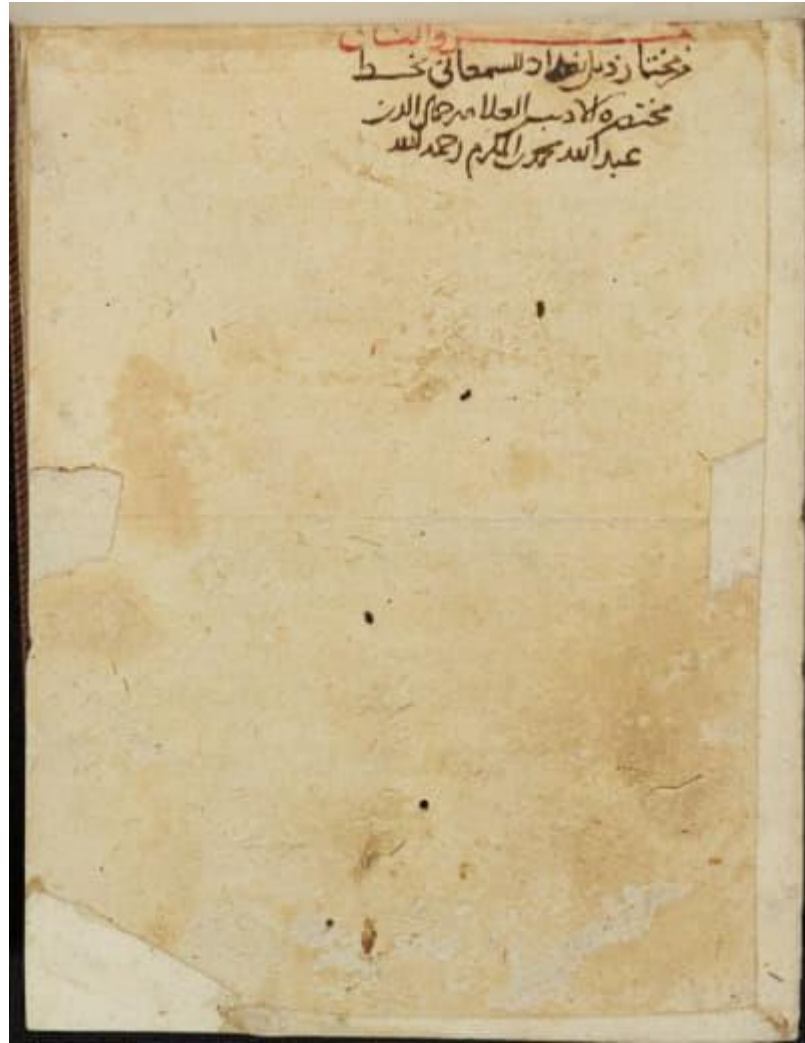 والثاني
من مختار ذيل بغداد للسمعاني بخط
مختصره الاديب العلامه جمال الدين
عبد الله محمد بن المكرم احمد الله